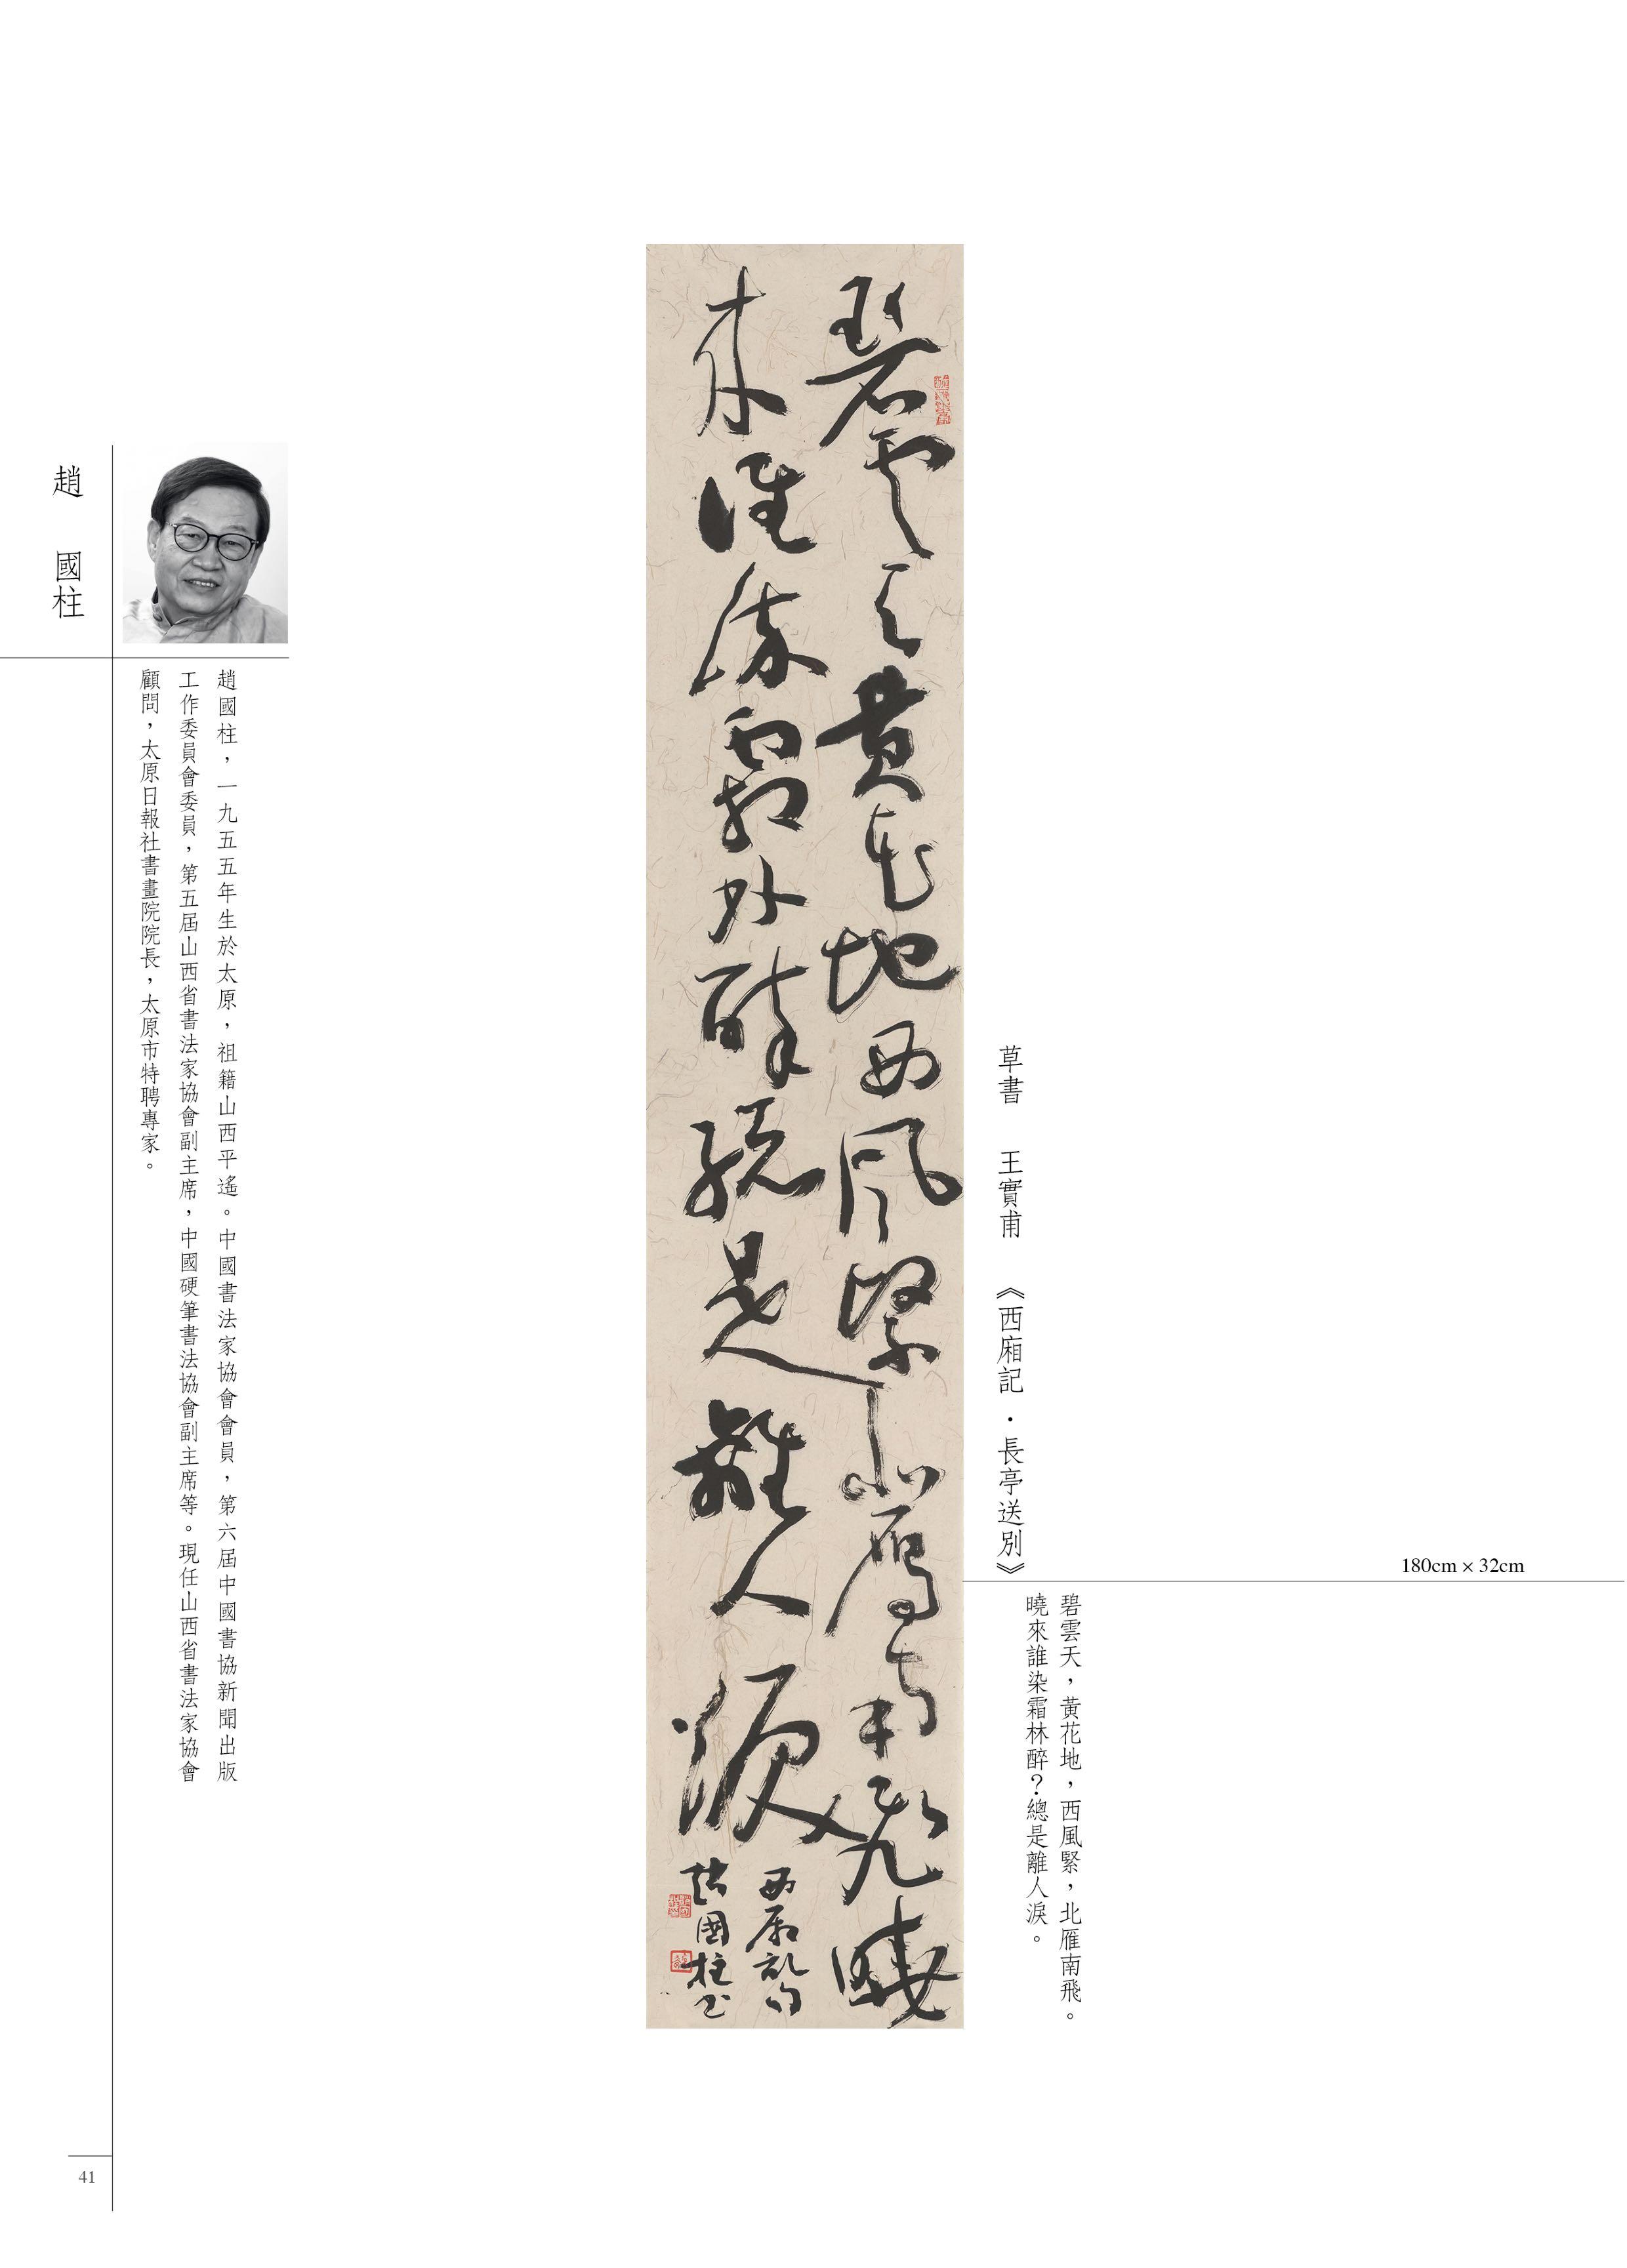 180cm × 32cm
碧雲天，黃花地，西風緊，北雁南飛。
曉來誰染霜林醉？總是離人淚。
草書　王實甫　《西廂記・長亭送別》
碧雲天黄花地西風緊北雁南飛曉
來誰染霜林醉總是離人淚
西廂記句
趙國柱書
趙國柱，一九五五年生於太原，祖籍山西平遙。中國書法家協會會員，第六屆中國書協新聞出版
工作委員會委員，第五屆山西省書法家協會副主席，中國硬筆書法協會副主席等。現任山西省書法家協會
顧問，太原日報社書畫院院長，太原市特聘專家。
趙　國柱
41